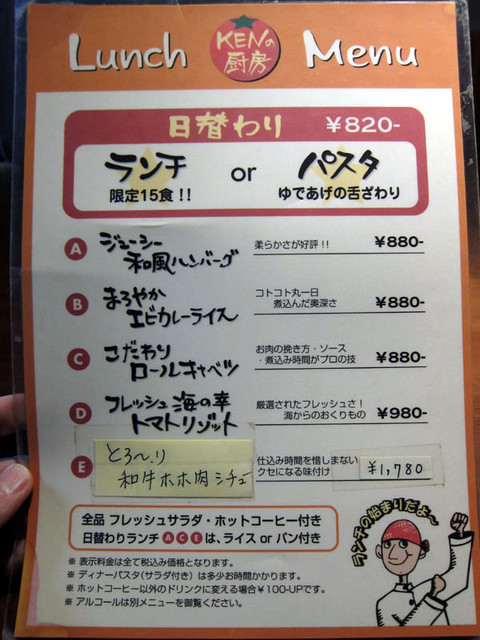 Lunch KENの厨房 Menu
日替わり ¥820-
ランチ or パスタ
限定15食!! ゆであげの舌ざわり
A ジューシー和風ハンバーグ 柔らかさが好評!! ¥880-
B まろやか
エビカレーライス
コトコト丸一日
煮込んだ奥深さ
¥880-
C こだわり
ロールキャベツ
お肉の挽き方・ソース
・煮込み時間がプロの技
¥880-
D フレッシュ海の幸
トマトリゾット
厳選されたフレッシュさ!
海からのおくりもの
¥980-
E とろ〜り
和牛ホホ肉シチュー
仕込み時間を惜しまない
クセになる味付け
¥1,780
全品 フレッシュサラダ・ホットコーヒー付き
日替わりランチ A C E は、ライス or パン付き
※ 表示料金は全て税込み価格となります。
※ ディナーパスタ(サラダ付き)は多少お時間かかります。
※ ホットコーヒー以外のドリンクに変える場合¥100-UPです。
※ アルコールは別メニューを御覧ください。
ランチの始まりだよ〜